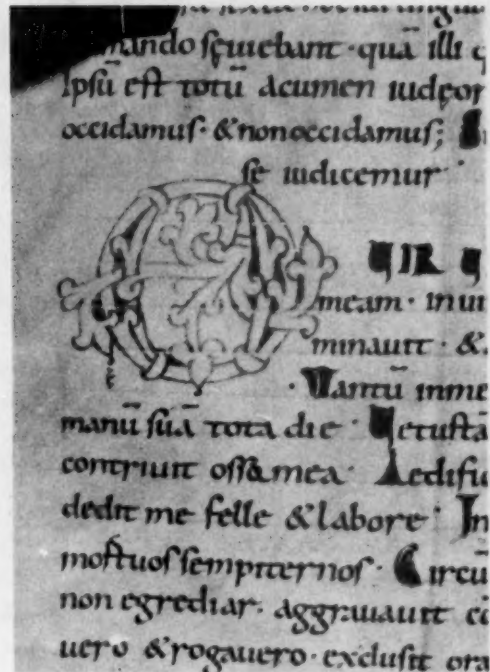 mando sęuiebant · quā illi q
Ipsū est totū acumen iudęor
occidamus · & non occidamus ;
se iudicemur
meam · In ui
minauit · &
Tantū in me
manū suā tota die · Vetustā
contriuit ossa mea · Aedifi
dedit me felle & labore · In
mortuos sempiternos · Circū
non egrediar · aggrauauit
uero & rogauero · exclusit ora